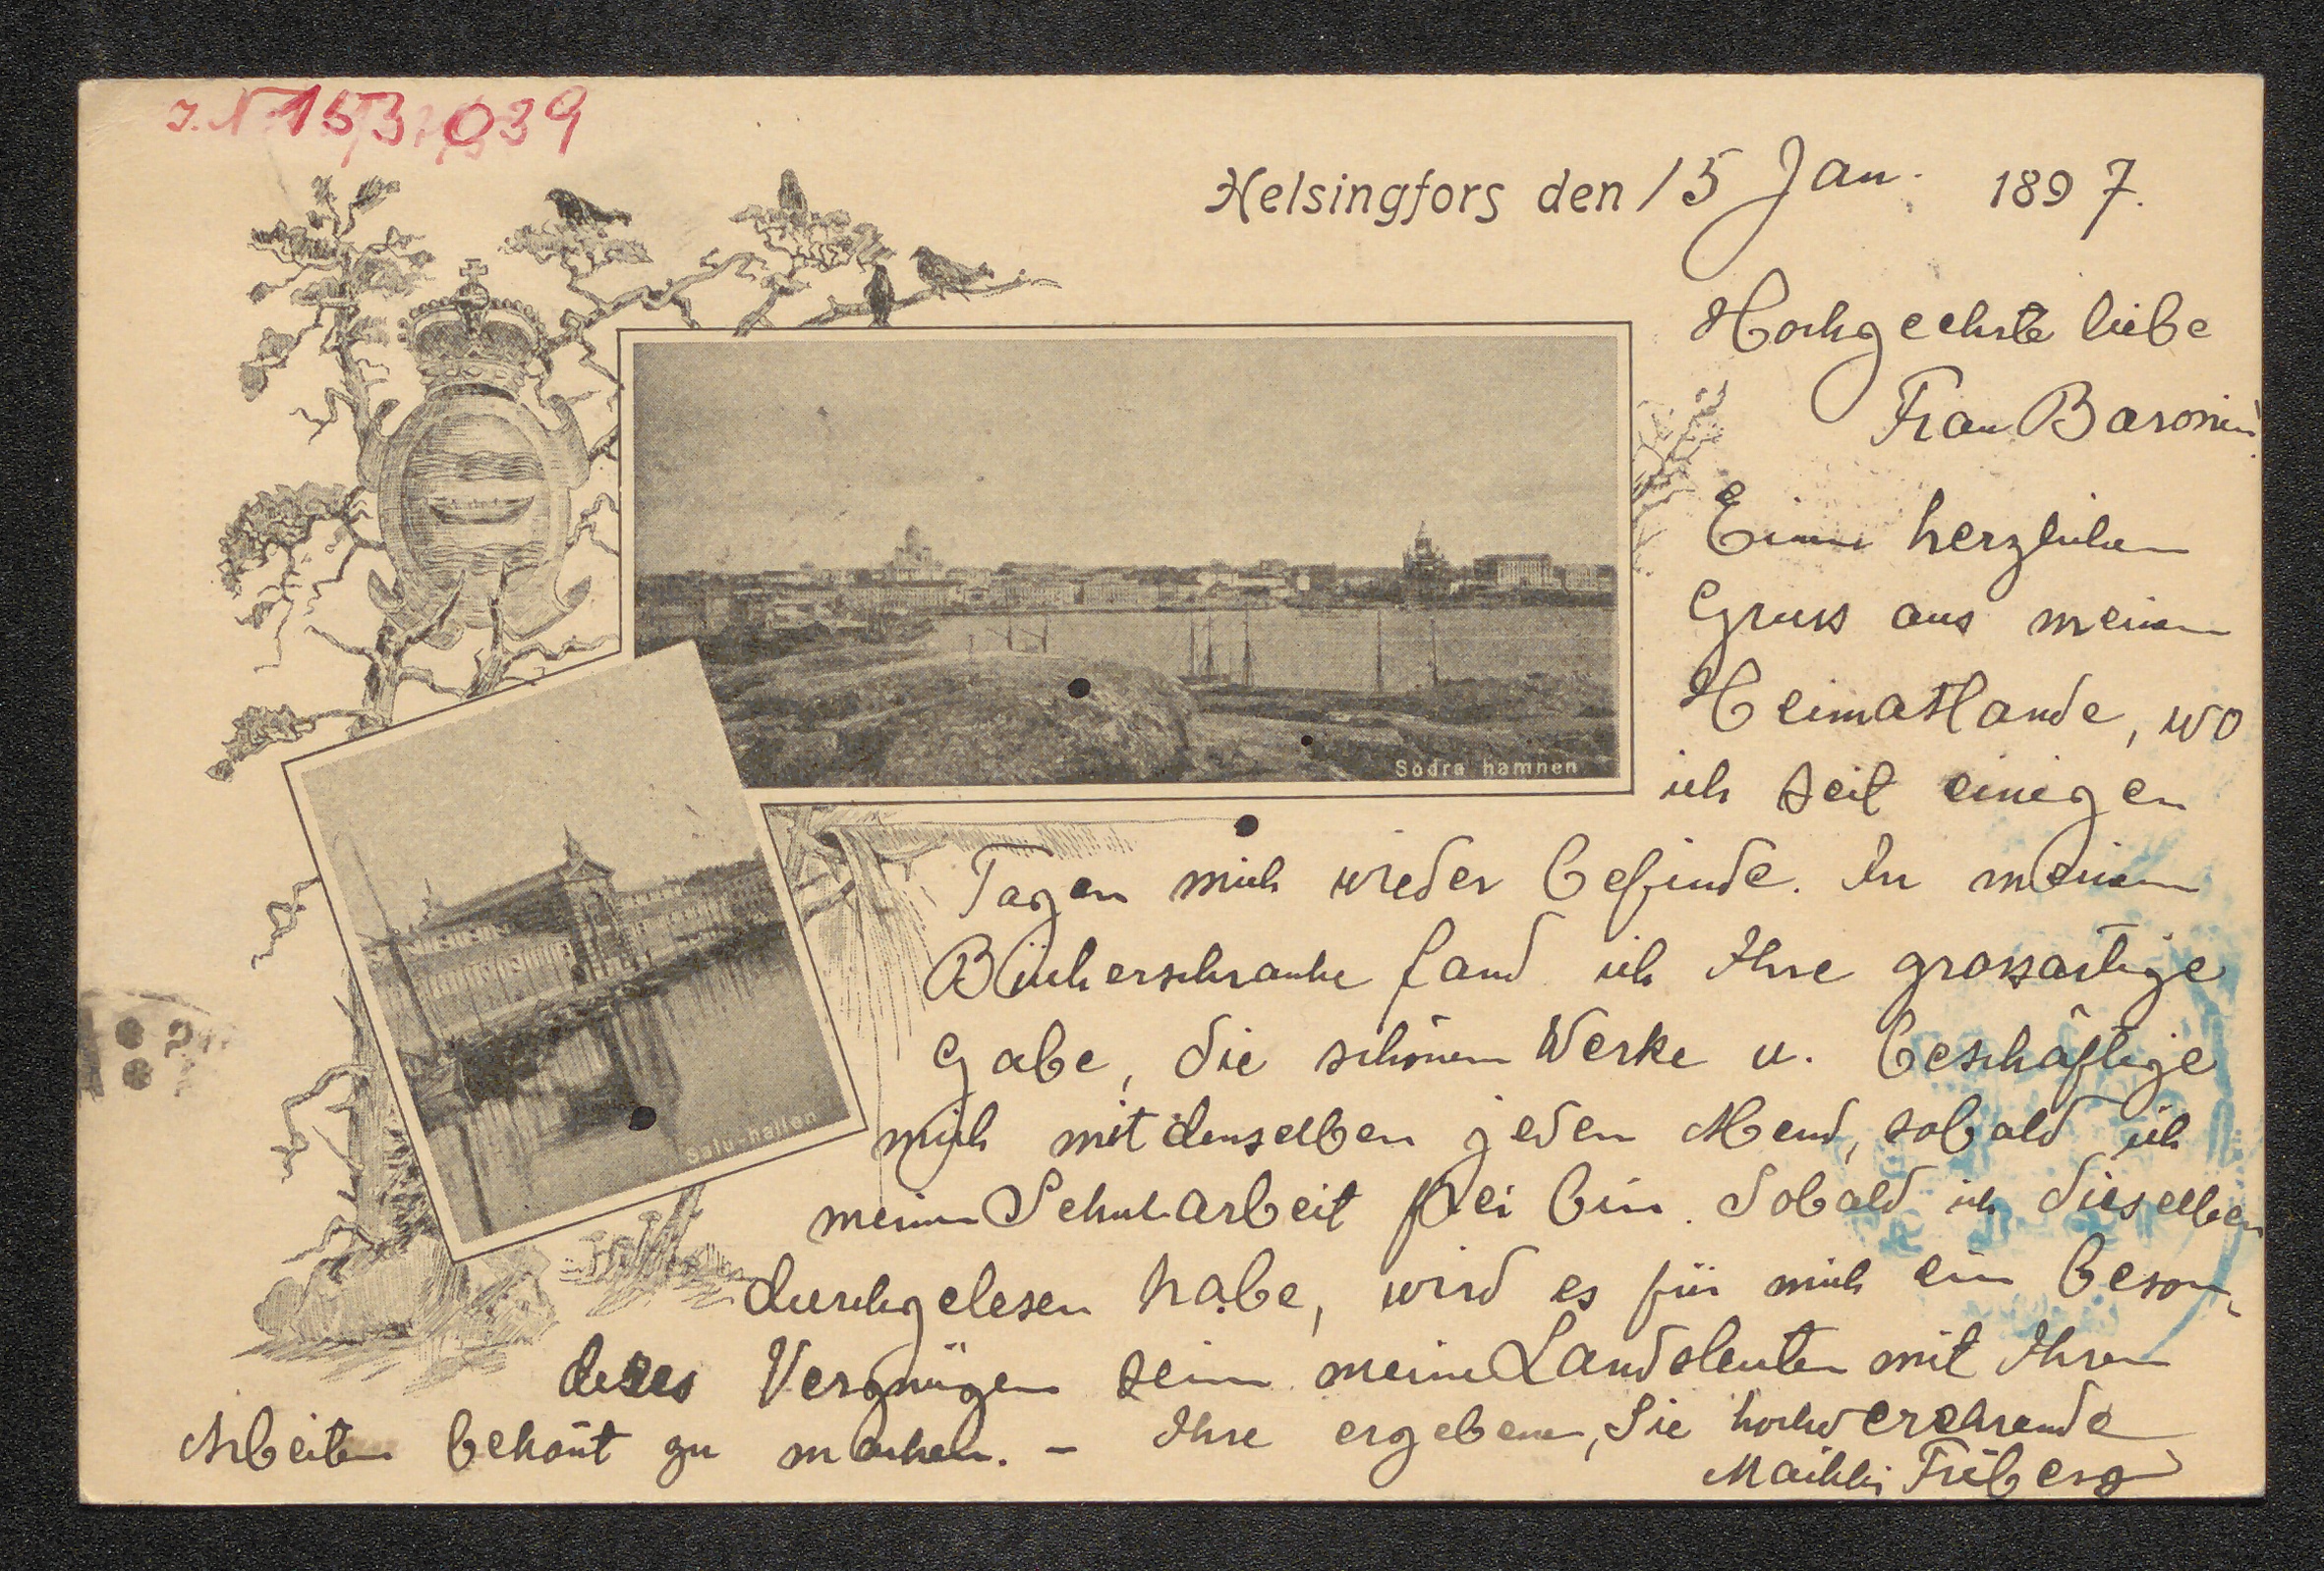 J.N 153.039
Helsingfors den 15 Jan. 1897.
Hochgeehrte liebe
Frau Baronin!
Einen herzlichen
Gruss aus meinem
Heimatlande, wo
ich seit einigen
Tagen mich wieder befinde. In meinem
Bücherschranke fand ich Ihre grossartige
Gabe, die schönen Werke u. beschäftige
mich mit denselben jeden Abend, sobald ich
meiner Schularbeit frei bin. Sobald ich dieselben
durchgelesen habe, wird es für mich ein beson-
deres Vergnügen sein meine Landsleuten mit Ihren
Arbeiten bekañt zu machen. – Ihre ergebene, Sie hochverehrende
Maikki Friberg
Södra hamnen
Salu-hallen